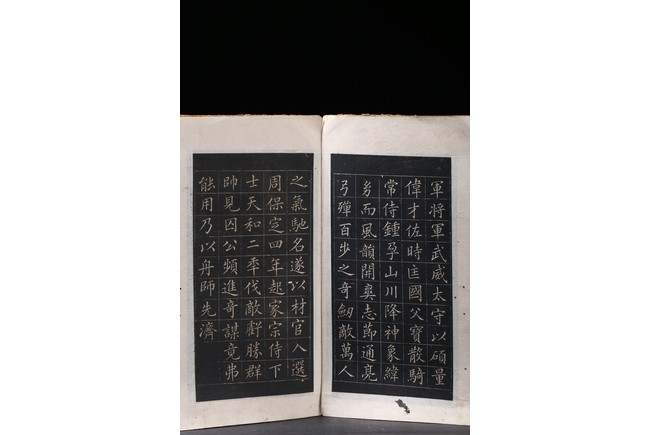 軍將軍武威太守以碩量
偉才佐時匡國父寶散騎
常侍鍾孕山川降神象緯
而風韻開奕志節通亮
弓殫百步之奇劒敵萬人
之氣馳名遂以材官入選
周保定四年起家宗侍下
士天和二年伐敵斬勝群
帥見囚公頻進奇謀竟弗
能用乃以舟師先濟